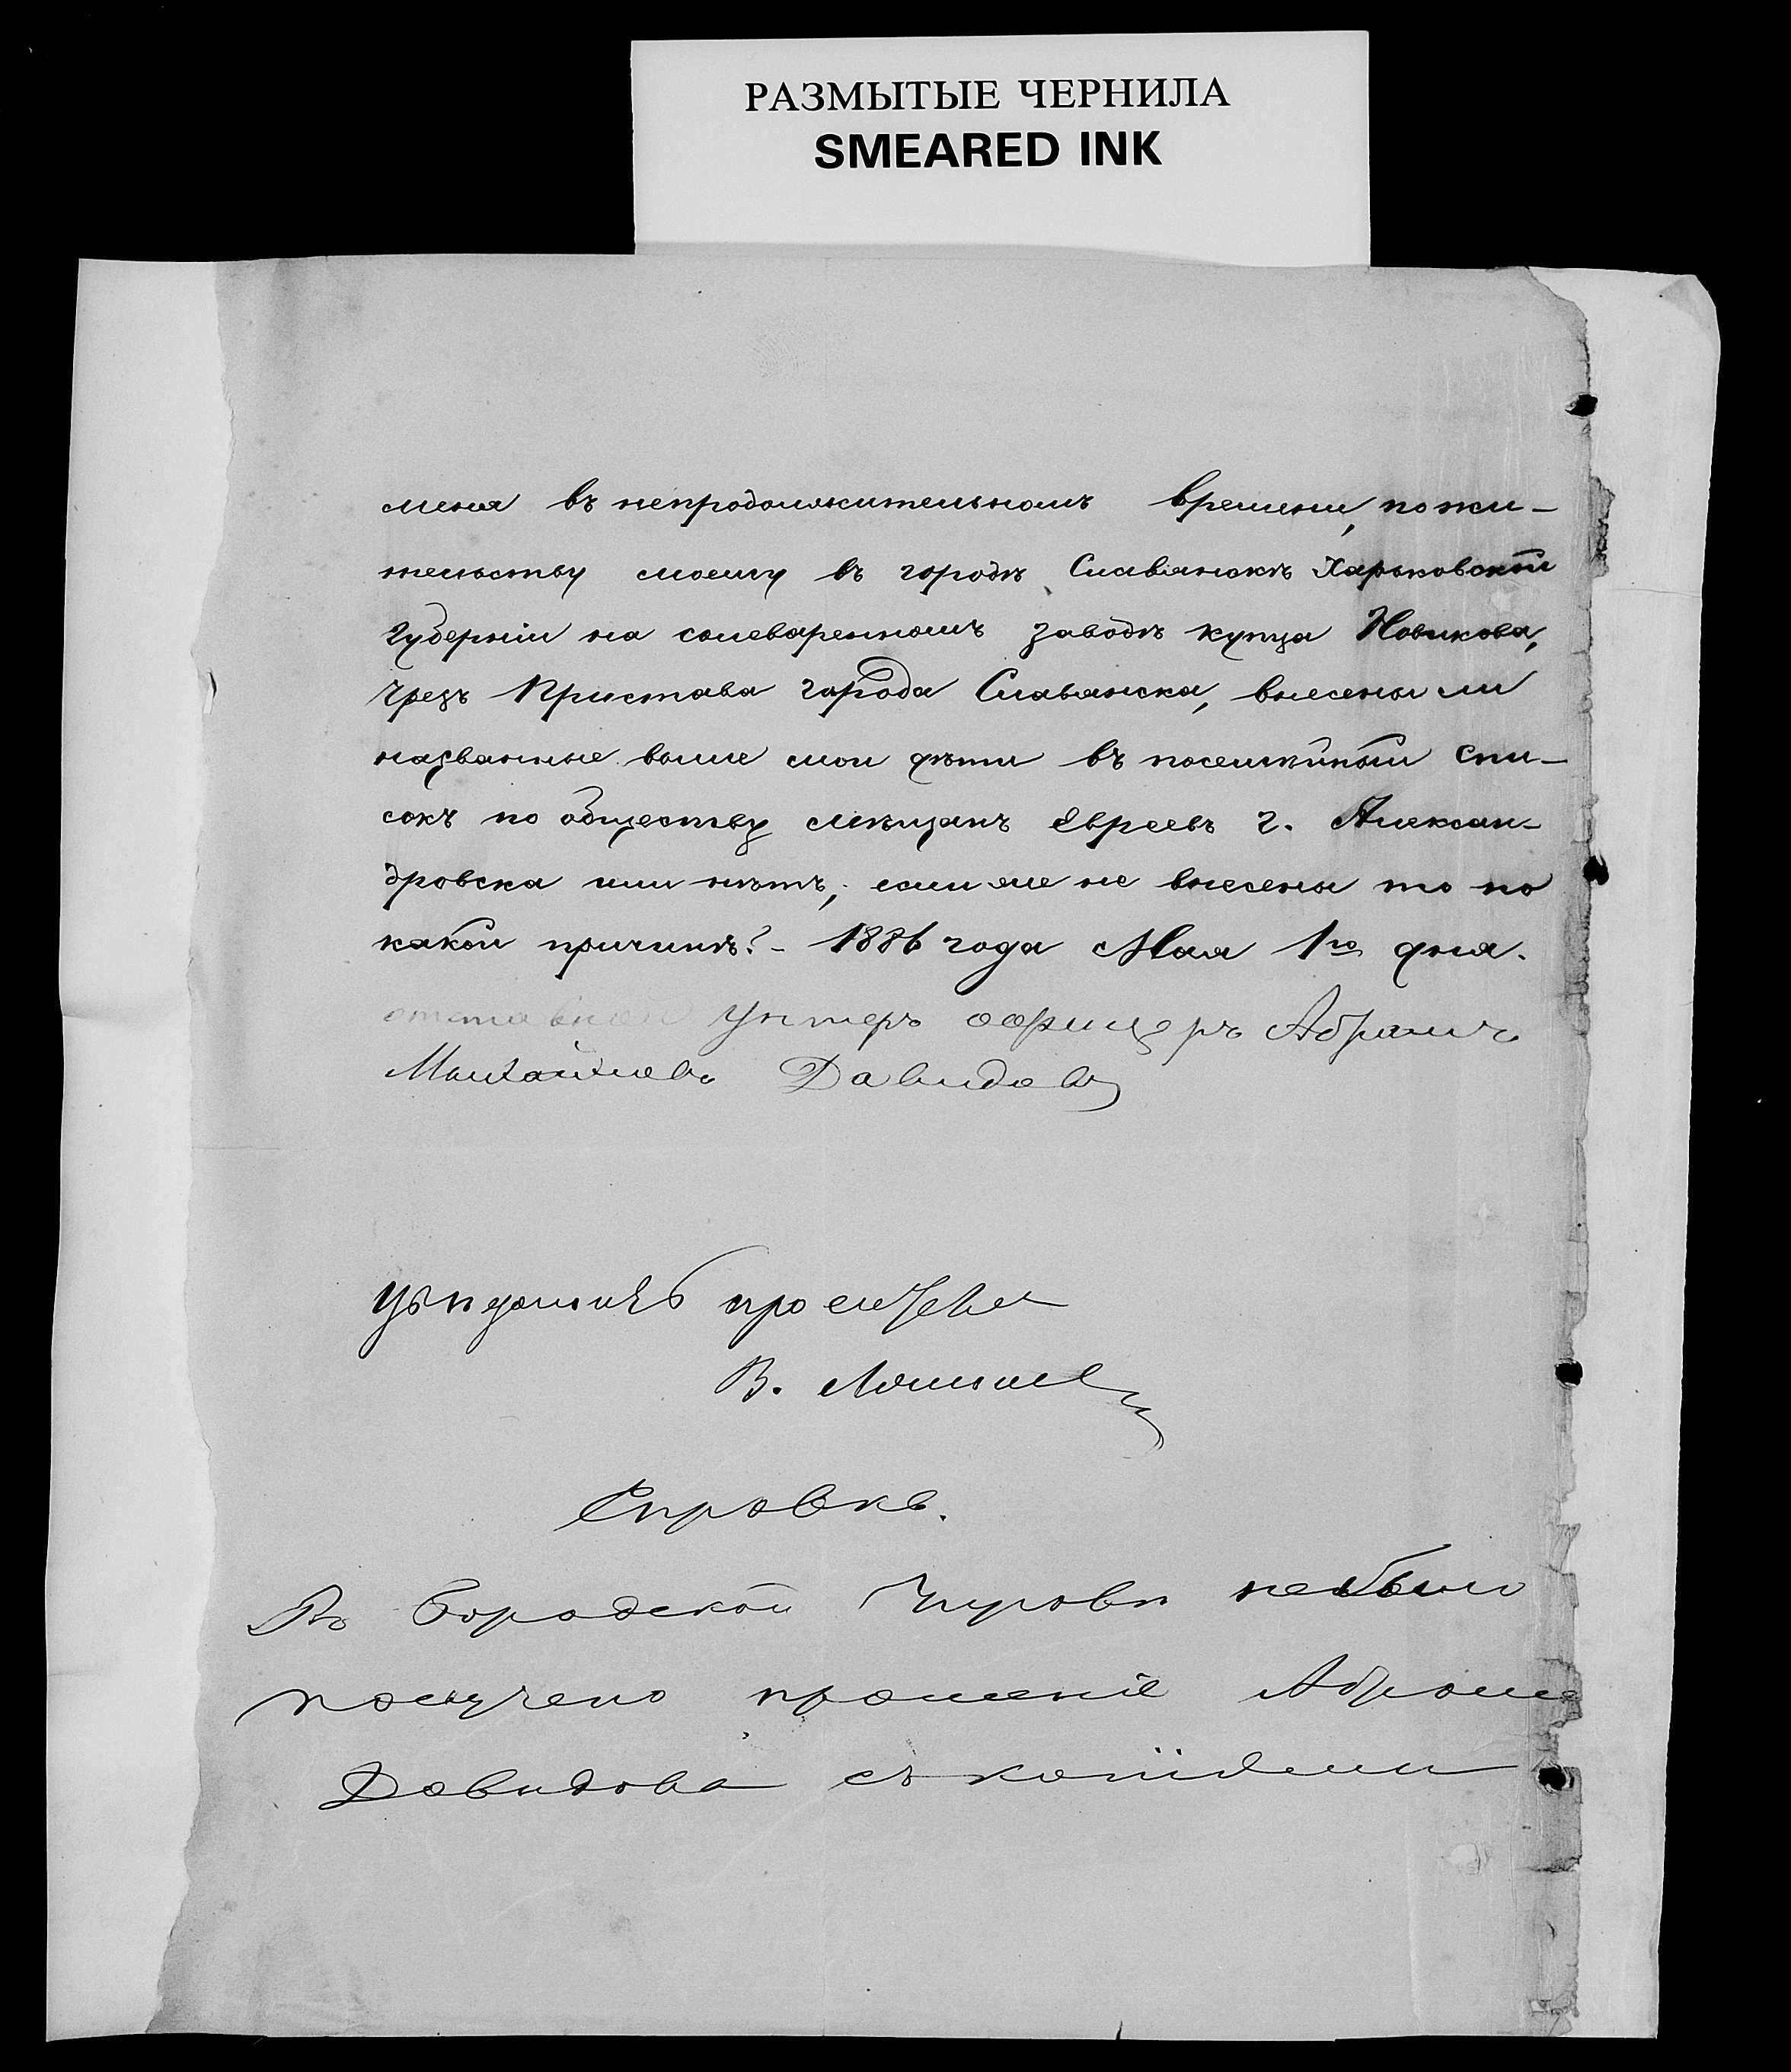 РАЗМЫТЫЕ ЧЕРНИЛА
SMEARED INK
меня въ непродолжительномъ времени, по жи-
тельству моему въ городѣ Славянскѣ Харьковской
Губерніи на солеваренномъ заводѣ купца Новикова,
чрезъ Пристава города Славянска, внесены ли
названные выше мои дѣти въ посемейный спи-
сокъ по обществу мѣщанъ Евреевъ г. Алексан-
дровска или нѣтъ, если же не внесены то по
какой причинѣ? - 1886 года Мая 1го дня.
отставной унтеръ офицеръ Абрамъ
Михайловъ Давидовъ
Справка.
Въ Городской Управѣ небыло
получено прошеніе Абрама
Давидова съ копіями